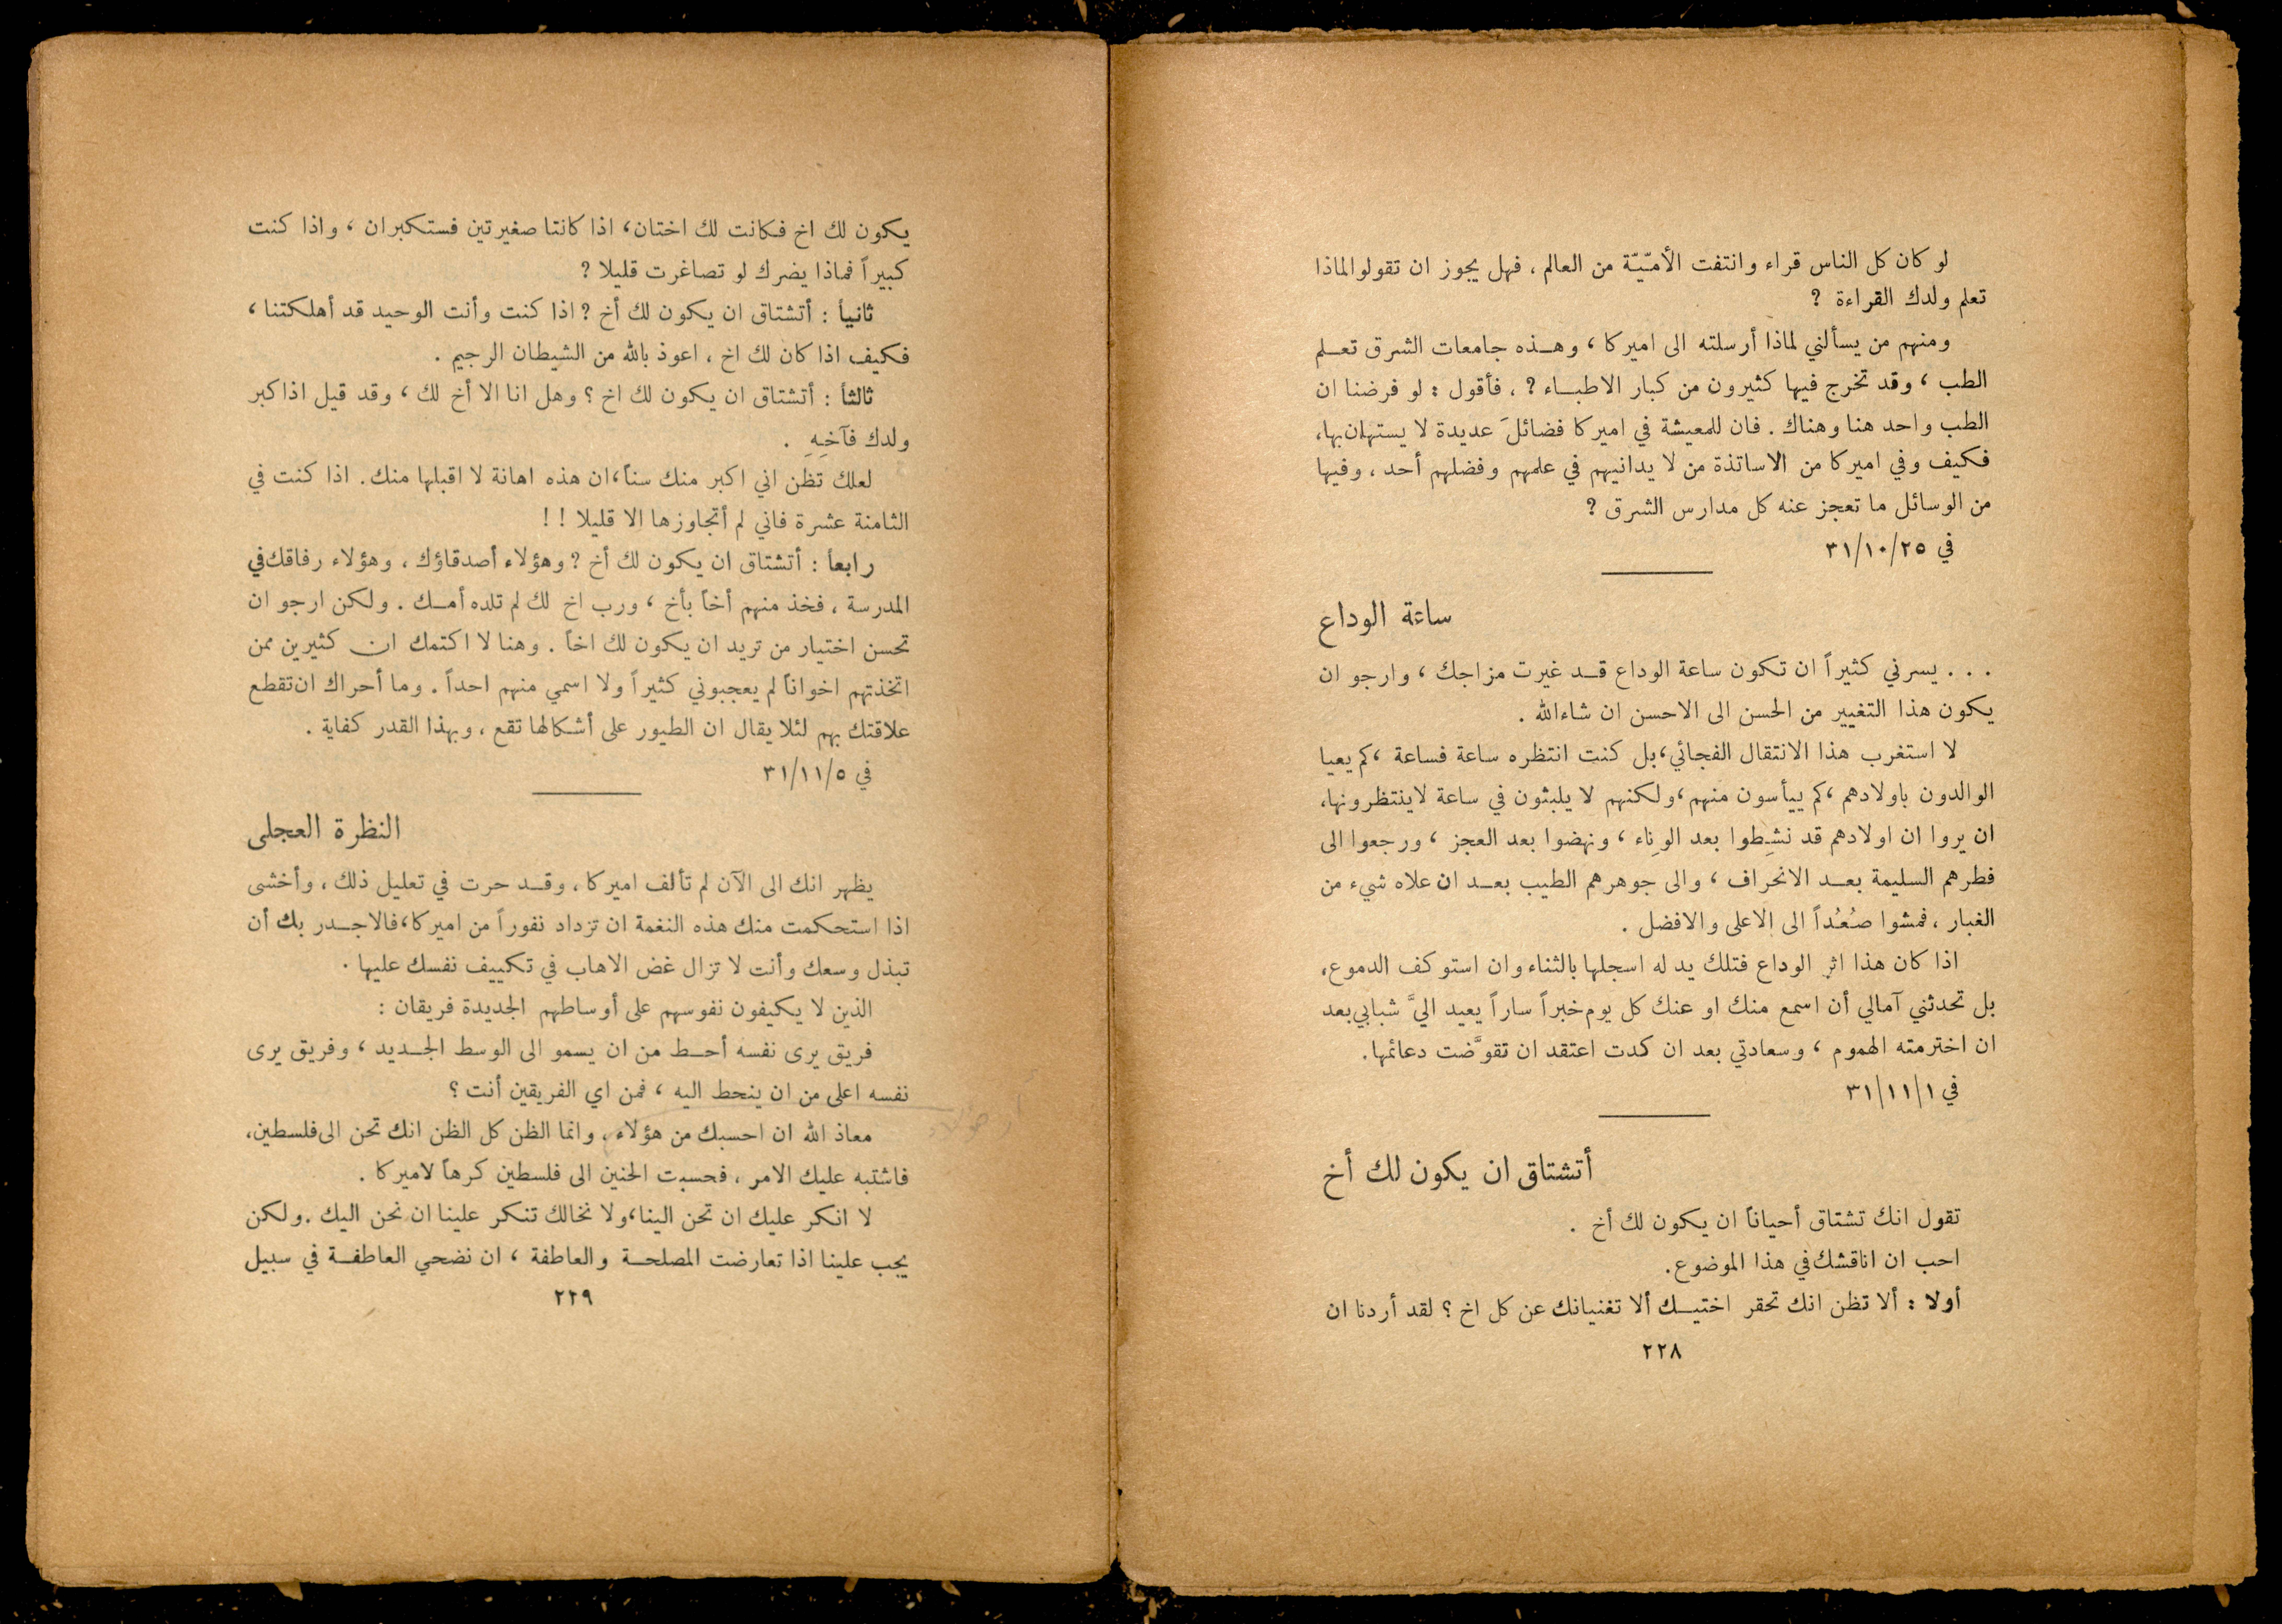 لو كان كل الناس قراء وانتفت الأمّيّة من العالم ، فهل يجوز ان تقولوا لماذا
تعلم ولدك القراءة ?
ومنهم من يسألني لماذا أرسلته الى اميركا ، وهـذه جامعات الشرق تعـلم
الطب ، وقد تخرج فيها كثيرون من كبار الاطبـاء ? ، فأقول : لو فرضنا ان
الطب واحد هنا وهناك . فان للمعيشة في اميركا فضائلَ عديدة لا يستهان بها،
فكيف وفي اميركا من الاساتذة من لا يدانيهم في علمهم وفضلهم أحد ، وفيها
من الوسائل ما تعجز عنه كل مدارس الشرق ?
في ٣١/١٠/٢٥
ساعة الوداع
. . . يسرني كثيراً ان تكون ساعة الوداع قـد غيرت مزاجك ، وارجو ان
يكون هذا التغيير من الحسن الى الاحسن ان شاءالله .
لا استغرب هذا الانتقال الفجائي، بل كنت انتظره ساعة فساعة ، كم يعيا
الوالدون باولادهم ، كم ييأسون منهم، ولكنهم لا يلبثون في ساعة لاينتظرونها،
ان يروا ان اولادهم قد نشِطوا بعد الوِناء ، ونهضوا بعد العجز ، ورجعوا الى
فطرهم السليمة بعـد الانحراف ، والى جوهرهم الطيب بعـد ان علاه شيء من
الغبار ، فمشوا صُعُداً الى الاعلى والافضل .
اذا كان هذا اثر الوداع فتلك يد له اسجلها بالثناء وان استوكف الدموع،
بل تحدثني آمالي أن اسمع منك او عنك كل يوم خبراً ساراً يعيد اليَّ شبابي بعد
ان اخترمته الهموم ، وسعادتي بعد ان كدت اعتقد ان تقوَّضت دعائمها.
في ٣١/١١/١
أتشتاق ان يكون لك أخ
تقول انك تشتاق أحياناً ان يكون لك أخ .
احب ان اناقشك في هذا الموضوع.
أولا : ألا تظن انك تحقر اختيـك ألا تغنيانك عن كل اخ ؟ لقد أردنا ان
٢٢٨
يكون لك اخ فكانت لك اختان، اذا كانتا صغيرتين فستكبران ، واذا كنت
كبيراً فماذا يضرك لو تصاغرت قليلا ?
ثانياً : أتشتاق ان يكون لك أخ ? اذا كنت وأنت الوحيد قد أهلكتنا ،
فكيف اذا كان لك اخ ، اعوذ بالله من الشيطان الرجيم .
ثالثاً : أتشتاق ان يكون لك اخ ؟ وهل انا الا أخ لك ، وقد قيل اذا كبر
ولدك فآخِهِ .
لعلك تظن اني اكبر منك سناً، ان هذه اهانة لا اقبلها منك. اذا كنت في
الثامنة عشرة فاني لم أتجاوزها الا قليلا ! !
رابعاً : أتشتاق ان يكون لك أخ ? وهؤلاء أصدقاؤك ، وهؤلاء رفاقك في
المدرسة ، فخذ منهم أخاً بأخ ، ورب اخ لك لم تلده أمـك . ولكن ارجو ان
تحسن اختيار من تريد ان يكون لك اخاً . وهنا لا اكتمك ان كثيرين ممن
اتخذتهم اخواناً لم يعجبوني كثيراً ولا اسمي منهم احداً . وما أحراك ان تقطع
علاقتك بهم لئلا يقال ان الطيور على أشكالها تقع ، وبهذا القدر كفاية .
في ٣١/١١/٥
النظرة العجلى
يظهر انك الى الآن لم تألف اميركا ، وقـد حرت في تعليل ذلك ، وأخشى
اذا استحكمت منك هذه النغمة ان تزداد نفوراً من اميركا، فالاجـدر بك أن
تبذل وسعك وأنت لا تزال غض الاهاب في تكييف نفسك عليها .
الذين لا يكيفون نفوسهم على أوساطهم الجديدة فريقان :
فريق يرى نفسه أحـط من ان يسمو الى الوسط الجـديد ، وفريق يرى
نفسه اعلى من ان ينحط اليه ، فمن اي الفريقين أنت ؟
معاذ الله ان احسبك من هؤلاء ، وانما الظن كل الظن انك تحن الى فلسطين،
فاشتبه عليك الامر ، فحسبت الحنين الى فلسطين كرهاً لاميركا .
لا انكر عليك ان تحن الينا، ولا نخالك تنكر علينا ان نحن اليك . ولكن
يجب علينا اذا تعارضت المصلحـة والعاطفة ، ان نضحي العاطفـة في سبيل
٢٢٩